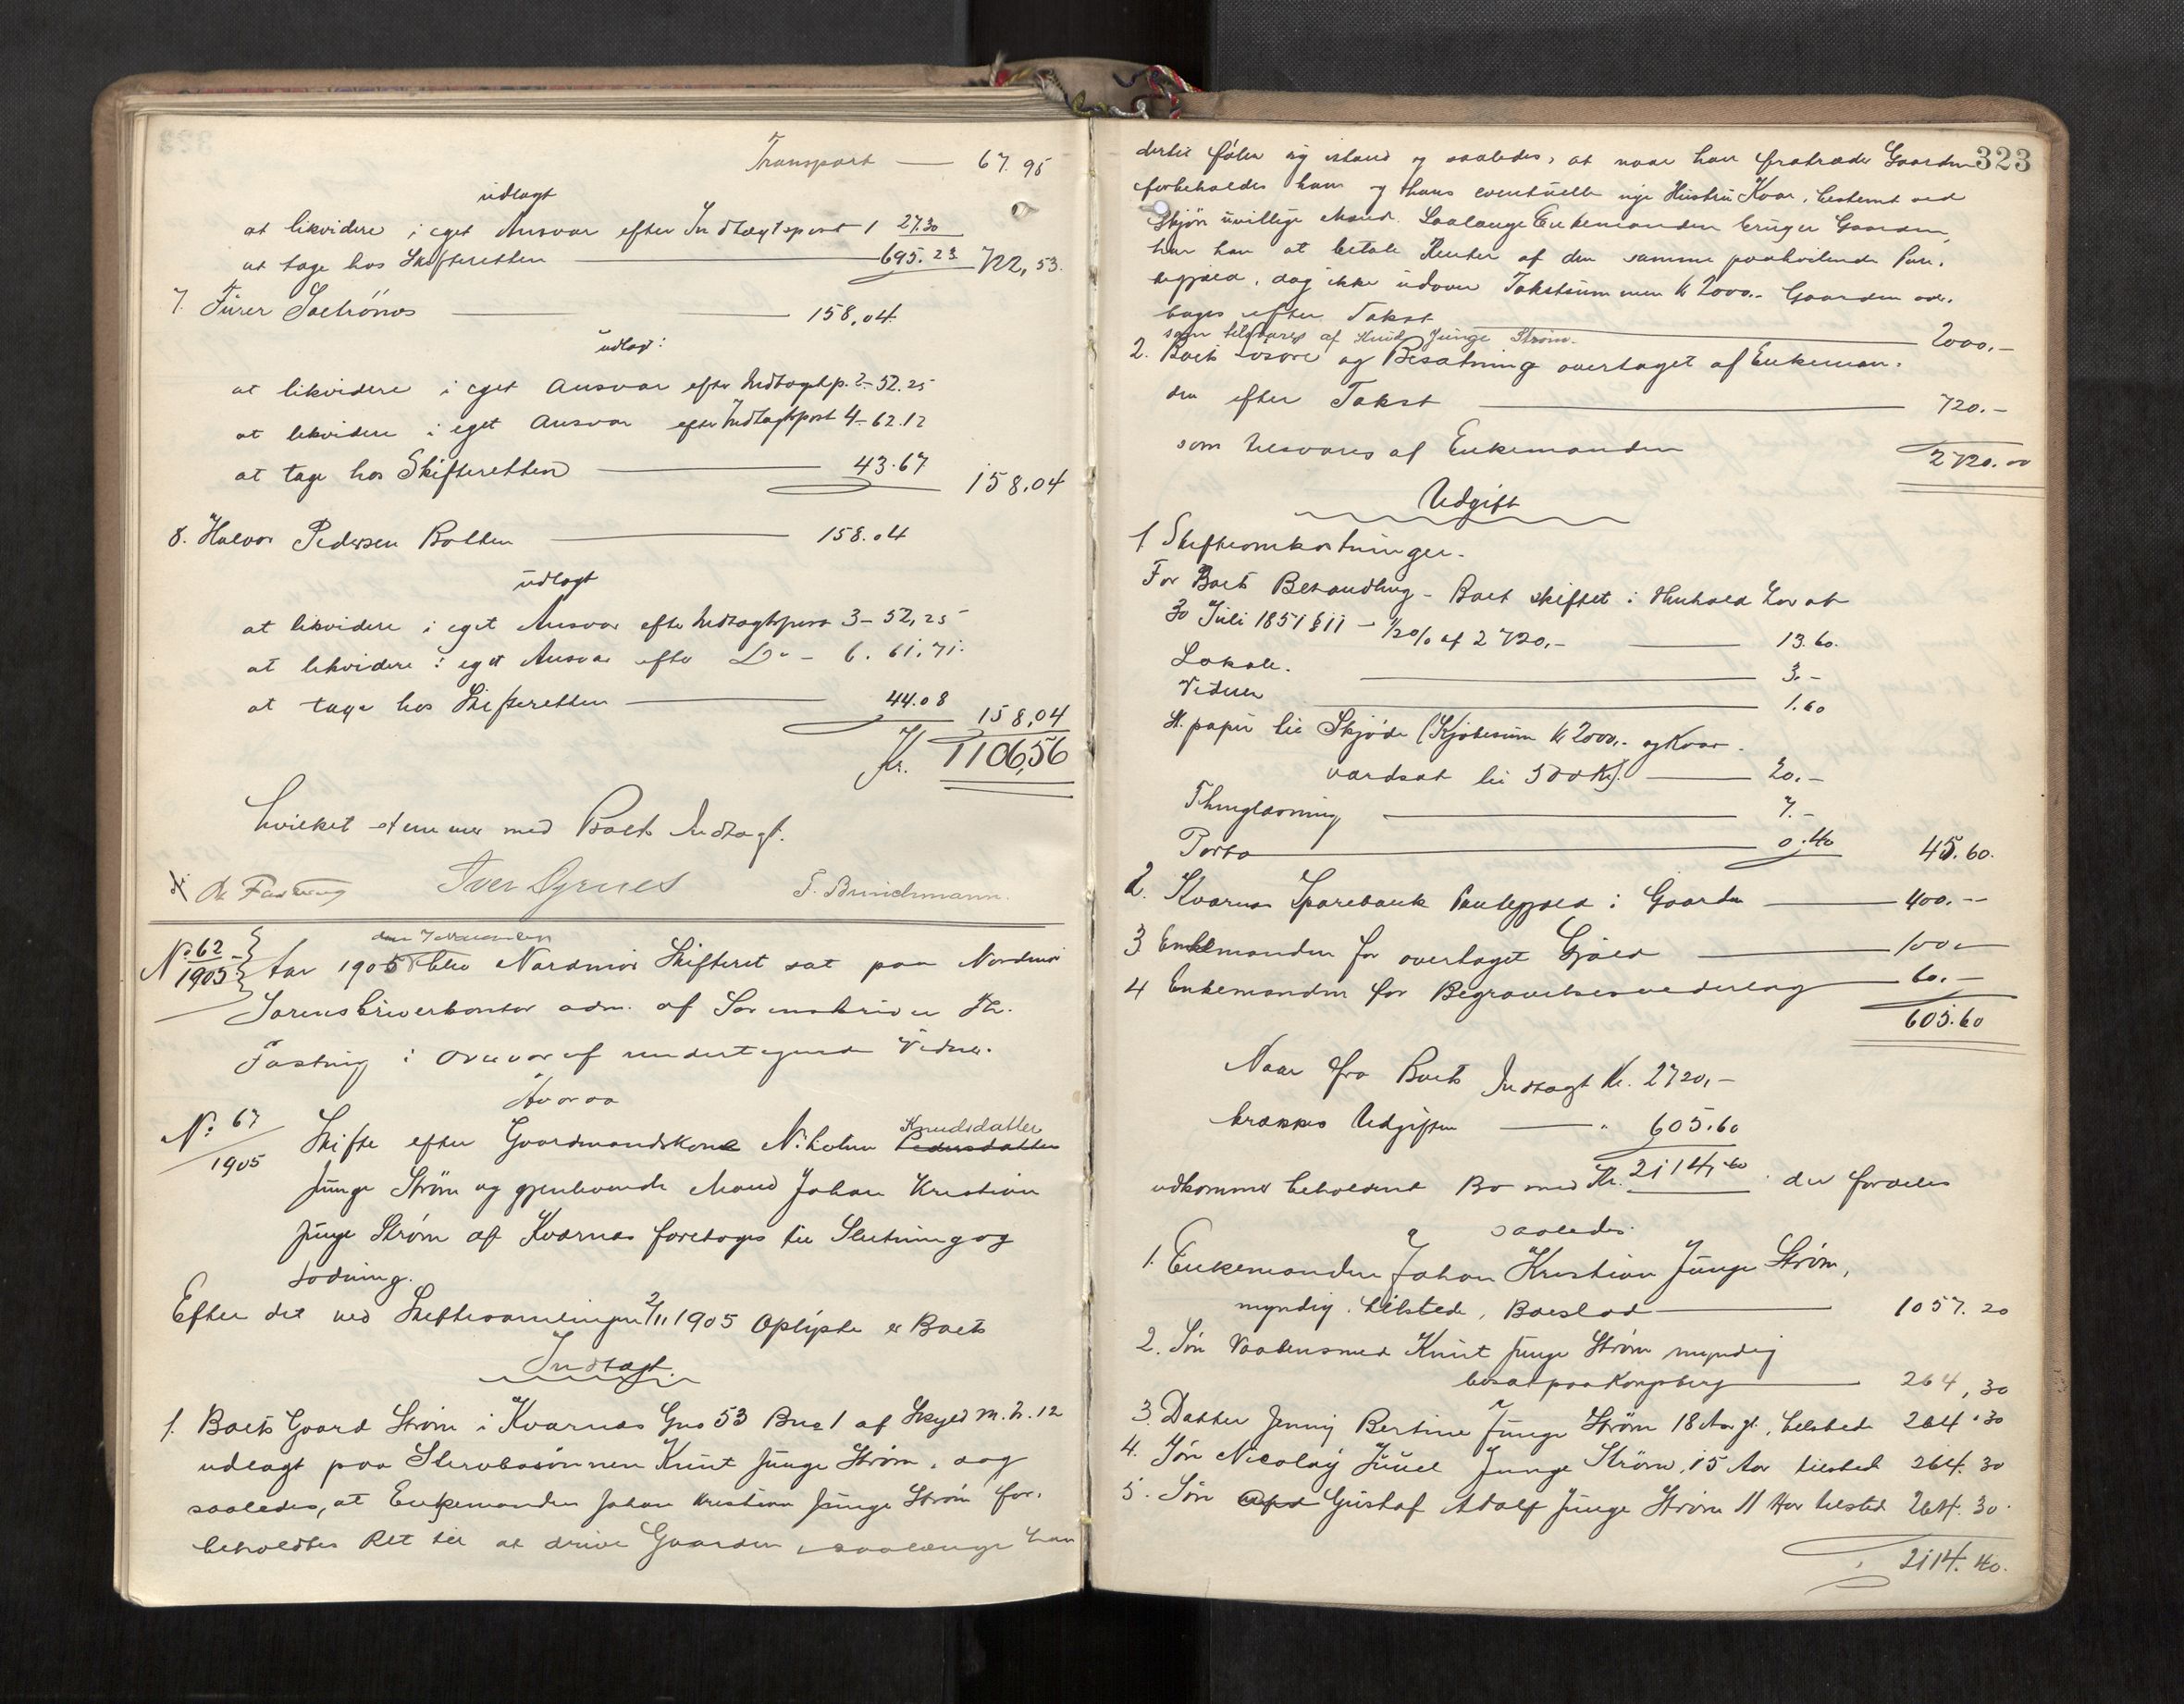 Transport — 67.95
udlagt
at likvidere i eget Ansvar efter Indtægtspost 1 27.30
at tage hos Skifteretten — 695.23 722,53.
7. Furer Sætrönos — 158,04.
udlagt:
at likvidere i eget Ansvar efter Indtægtsp. 2 - 52.25
at likvidere i eget Ansvar efter Indtægtspost 4 - 62.12
at tage hos Skifteretten — 43.67 158,04
8. Halvor Pedersen Bolten — 158.04
udlagt
at likvidere i eget Ansvar efter Indtægtspost 3 - 52,25
at likvidere i eget Ansvar efter Do - 6. 61.71.
at tage hos Skifteretten — 44.08 158,04
Kr. 1106,56
hvilket stemmer med Boets Indtægt.
Chr Fasting Iver Öyenes T. Brinchmann.
No 62 1905 Aar 1905 den 7 November blev Nordmør Skifteret sat paa Nordmør
Sorenskriverkontor adm. af Sorenskriver Chr.
Fasting i Overvær af undertegnede Vidner.
Hvorda
No 67 1905 Skifte efter Gaardmandskone Nikoline Pedersdatter Knudsdatter
Junge Strøm og gjenlevende Mand Johan Kristian
Junge Strøm af Kværnes foretoges til Slutning og
Lodning.
Efter det ved Skiftesamlingen 2/11 1905 Oplyste er Boets
Indtægt.
1. Boets Gaard Strøm i Kværnes Gno 53 Bno 1 af Skyld M. 2.12
udlagt paa Stervbosønnen Knut Junge Strøm, dog
saaledes, at Enkemanden Johan Kristian Junge Strøm for-
beholdtes Ret til at drive Gaarden, saalænge han
323
dertil føler sig istand og saaledes, at naar han fratræder Gaarden
forbeholdes ham og hans eventuelle nye Hustru Kaar, bestemt ved
Skjøn uvillige Mænd. Saalænge Enkemanden bruger Gaarden,
har han at betale Renter af den samme paahvilende Pan-
tegjæld, dog ikke udover Takstsummen kr 2000.- Gaarden ove-
tages efter Takst
som tilsvares af Knud Junge Strøm. — 2000.-
2. Boets Løsøre og Besætning overtaget af Enkeman-
den efter Takst — 720.-
som tilsvares af Enkemanden 2720.00
Udgift
1 Skifteomkostninger.
For Boets Behandling - Boet skiftet i Henhold Lov af
30 Juli 1851 § 11 - 1/2 % af 2720,- — 13.60.
Lokale. — 3.-
Vidner — 1.60
St. papir til Skjøde (Kjøbesum kr 2000,- og Kaar
værdsat til 500 Kr). — 20.-
Thinglæsning — 7.-
Porto — 0.40 45.60.
2. Kværnes Sparebank Pantegjæld i Gaarden — 400.--
3 Enkemanden for overtaget Gjæld — 100.-
4 Enkemanden for Begravelsesvederlag — 60.-
605.60
Naar fra Boets Indtægt Kr. 2720,-
trækkes Udgiften — " 605.60
udkommer beholdent Bo med Kr. 2114,40. der fordeles
saaledes.
1. Enkemanden Johan Kristian Junge Strøm,
myndig, tilstede, Boeslod — 1057.20
2. Søn Vaabensmed Knut Junge Strøm myndig
bosat paa Kongsberg — 264,30
3. Datter Jenny Bertine Junge Strøm 18 Aar gl., tilstede 264.30
4. Søn Nicolay Juuel Junge Strøm, 15 Aar tilsted 264.30
5. Søn Gustaf Adolf Junge Strøm 11 Aar tilsted 264.30.
2114.40.